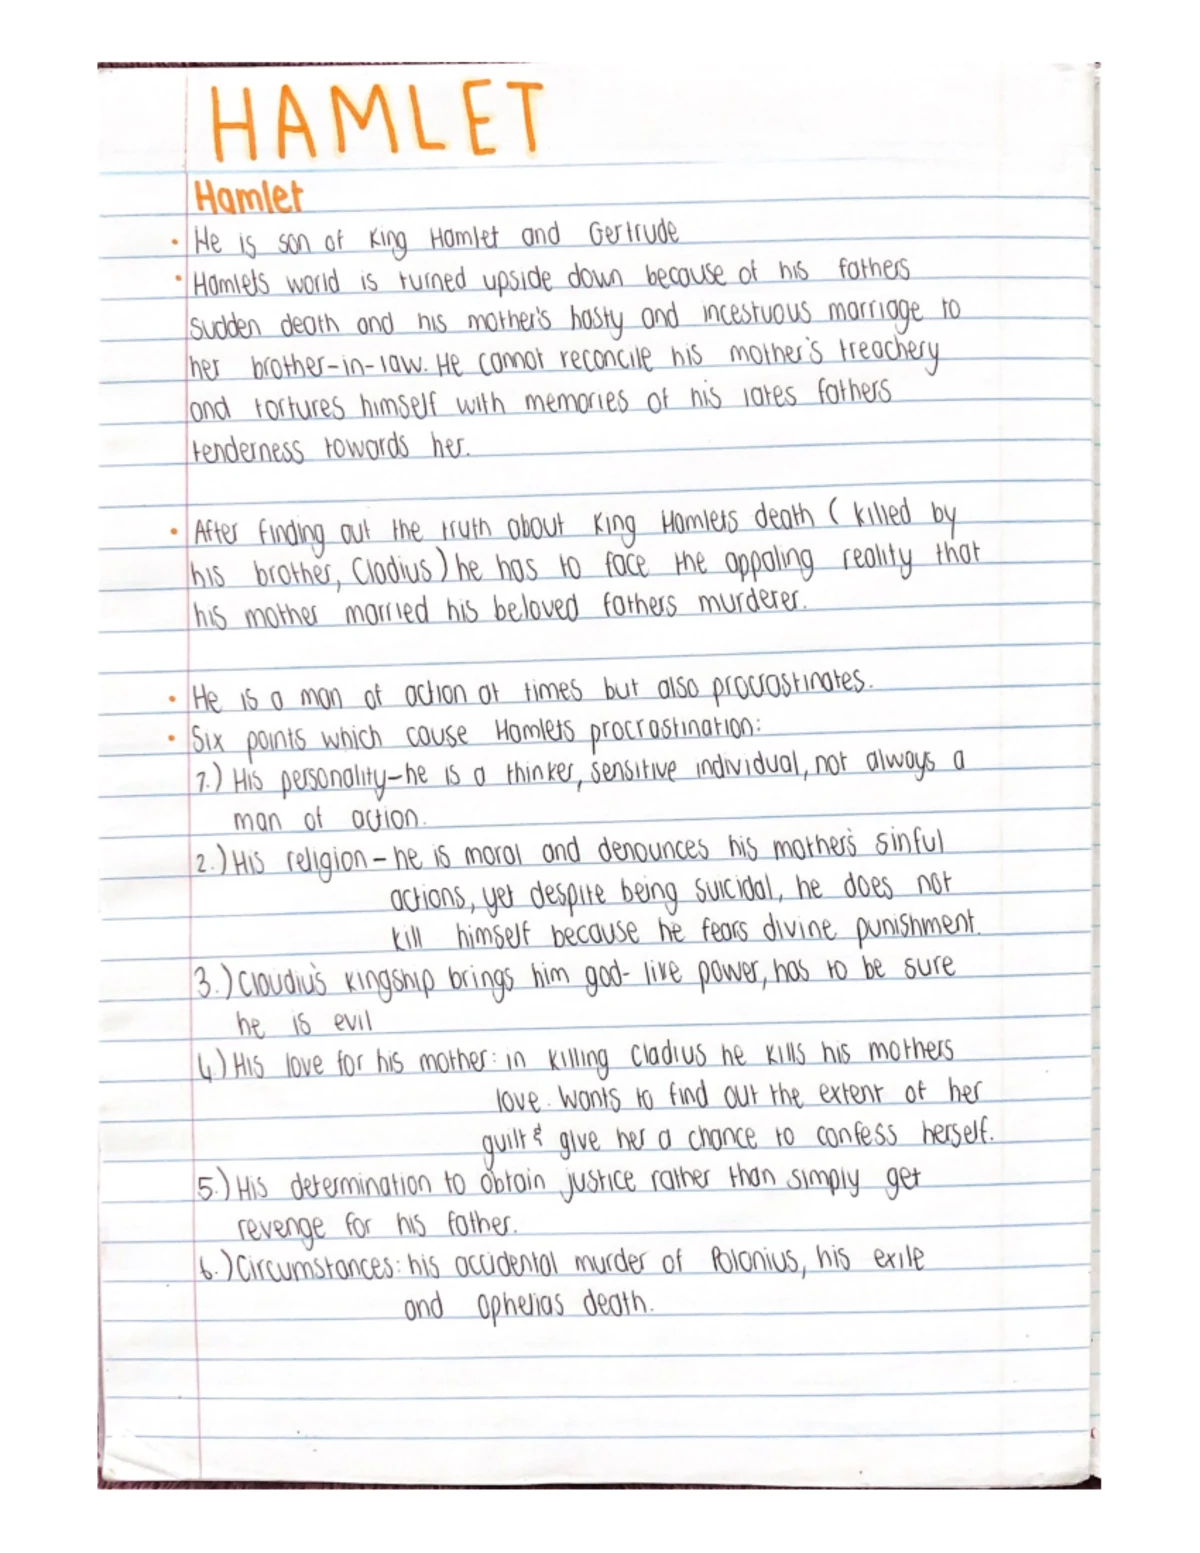 HAMLET
Hamlet
• He is son of King Hamlet and Gertrude
• Hamlets world is turned upside down because of his fathers
sudden death and his mother's hasty and incestuous marriage to
her brother-in-law. He cannot reconcile his mother's treachery
and tortures himself with memories of his lates fathers
tenderness towards her.
• After finding out the truth about King Hamlets death ( killed by
his brother, Cladius) he has to face the appaling reality that
his mother married his beloved fathers murderer.
• He is a man of action at times but also procrastinates.
• Six points which cause Hamlets procrastination:
1.) His personality-he is a thinker, sensitive individual, not always a
man of action.
2.) His religion - he is moral and denounces his mother's sinful
actions, yet despite being suicidal, he does not
kill himself because he fears divine punishment.
3.) Claudiu's kingship brings him god- live power, has to be sure
he is evil
4.) His love for his mother: in killing Cladius he kills his mothers
love. Wants to find out the extent of her
guilt & give her a chance to confess herself.
5.) His determination to obtain justice rather than simply get
revenge for his father.
6.) Circumstances: his accidental murder of Polonius, his exile
and Ophelias death.